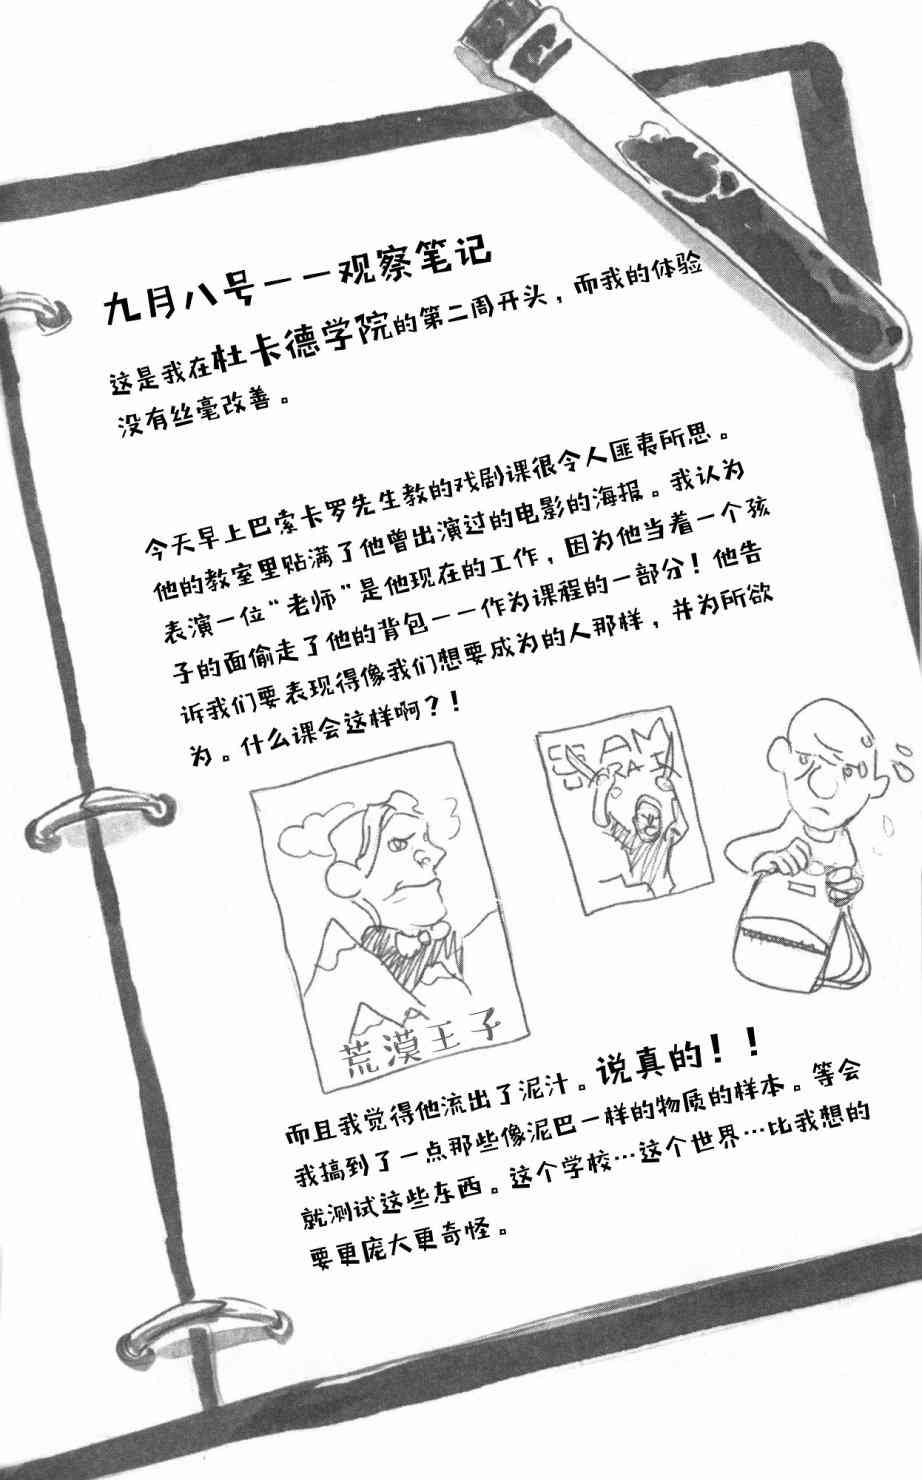 九月八号——观察笔记
这是我在杜卡德学院的第二周开头，而我的体验
没有丝毫改善。
今天早上巴索卡罗先生教的戏剧课很令人匪夷所思。
他的教室里贴满了他曾出演过的电影的海报。我认为
表演一位“老师”是他现在的工作，因为他当着一个孩
子的面偷走了他的背包——作为课程的一部分！他告
诉我们要表现得像我们想要成为的人那样，并为所欲
为。什么课会这样啊？！
荒漠王子
而且我觉得他流出了泥汁。说真的！！
我搞到了一点那些像泥巴一样的物质的样本。等会
就测试这些东西。这个学校…这个世界…比我想的
要更庞大更奇怪。